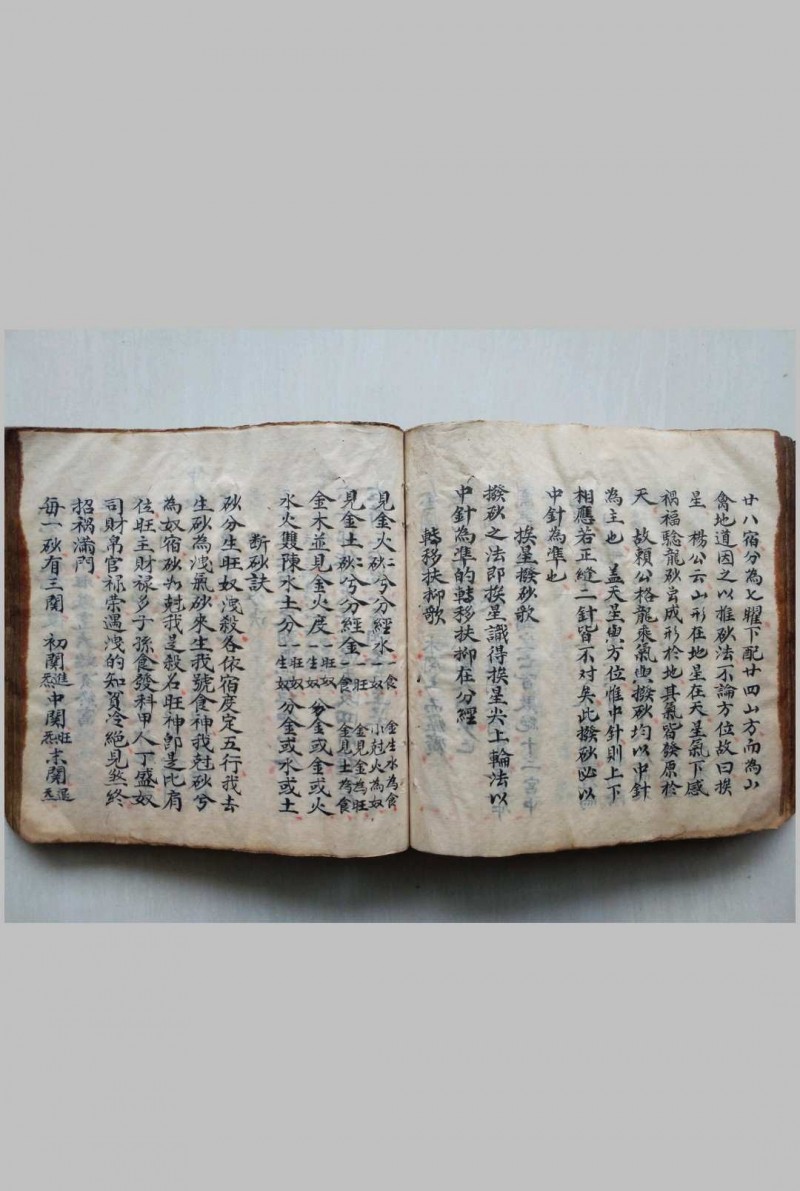 廿八宿分為七曜下配廿四山方而為山
禽地道因之以推砂法不論方位故曰挨
星 楊公云山形在地星在天星氣下感
禍福驗龍砂宮成形於地其氣皆發原於
天 故賴公格龍乘氣與撥砂均以中針
為主也 盖天星與方位惟中針則上下
相應若正縫二針皆不对矣此撥砂必以
中針為準也
挨星撥砂歌
撥砂之法即挨星識得挨星尖上輪法以
中針為準的轉移扶抑在分經
轉移扶抑歌
見金火砂兮分經水一食一奴 金生水為食小尅火為奴
見金土砂兮分經金一食一旺 金見金為旺金見土為食
金木並見金火度一生奴一旺奴 分金或金或火
水火雙陳水土分一生奴一旺奴 分金或水或土
断砂訣
砂分生旺奴洩殺各依宿度定五行我去
生砂為洩氣砂來生我號食神我尅砂兮
為奴宿砂如尅我是殺名旺神即是比肩
位旺主財祿多子孫食發科甲人丁盛奴
司財帛官禄荣遇洩的知貧冷絕見煞終
招禍滿門
每一砂有三関 初関進氣中関旺氣末関退氣